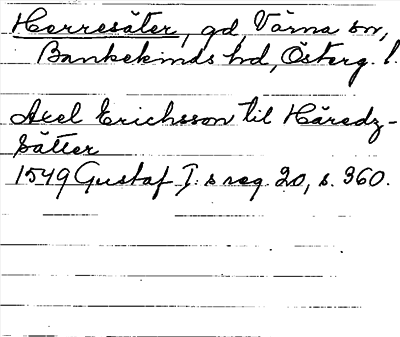 Herresäter, gd, Värna sn,
Bankekinds hd, Österg. l.
Axel Erichsson til Häredz-
sätter
1549 Gustaf I:s reg. 20, s. 360.